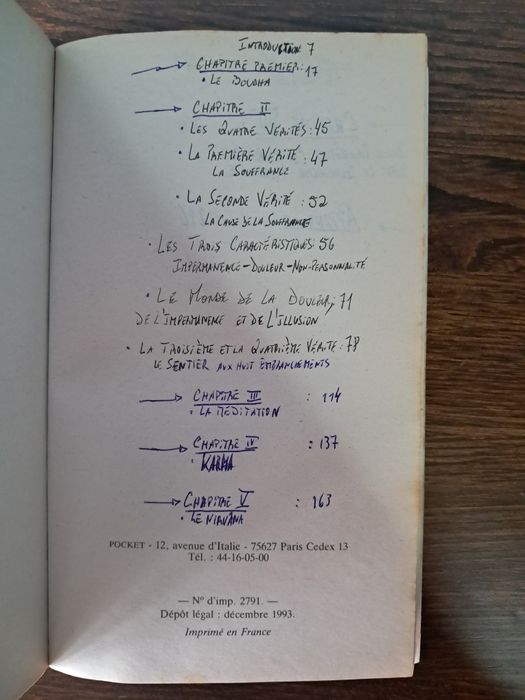 INTRODUCTION 7
→ CHAPITRE PREMIER: 17
• LE BOUDHA
→ CHAPITRE II
• LES QUATRE VÉRITÉS: 45
• LA PREMIÈRE VÉRITÉ : 47
LA SOUFFRANCE
• LA SECONDE VÉRITÉ : 52
LA CAUSE DE LA SOUFFRANCE
• LES TROIS CARACTÉRISTIQUES: 56
IMPERMANENCE-DOULEUR-NON-PERSONNALITÉ
• LE MONDE DE LA DOULEUR, 71
DE L'IMPERMANENCE ET DE L'ILLUSION
• LA TROISIÈME ET LA QUATRIÈME VÉRITÉ: 78
LE SENTIER AUX HUIT EMBRANCHEMENTS
→ CHAPITRE III : 114
• LA MÉDITATION
→ CHAPITRE IV : 137
• KARMA
→ CHAPITRE V : 163
• LE NIRVÂNA
POCKET - 12, avenue d'Italie - 75627 Paris Cedex 13
Tél. : 44-16-05-00
— N° d'imp. 2791. —
Dépôt légal : décembre 1993.
Imprimé en France